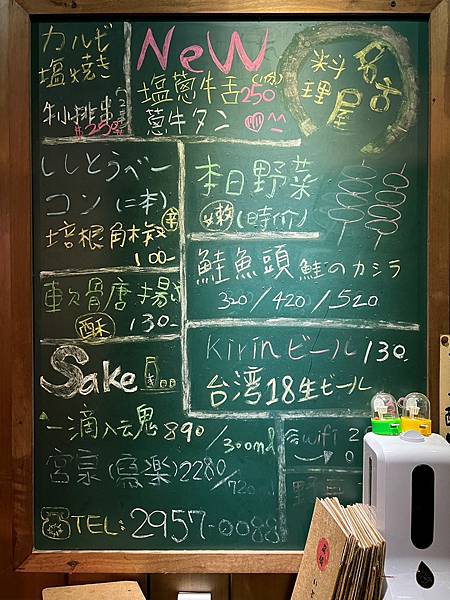 カルビ
塩焼き
牛小排串
NeW
塩蔥牛舌 250
蔥牛タン
名古屋
料理
ししとうベー
コン (二本)
培根角椒 辛
100-
本日野菜
(時価)
鮭魚頭 鮭のカシラ
320/420/520
軟骨唐揚
酥 130-
Kirinビール 130.
台湾18生ビール
Sake
一滴入魂 890/300ml
宮泉 2280/720
wifi
TEL: 2957-0088